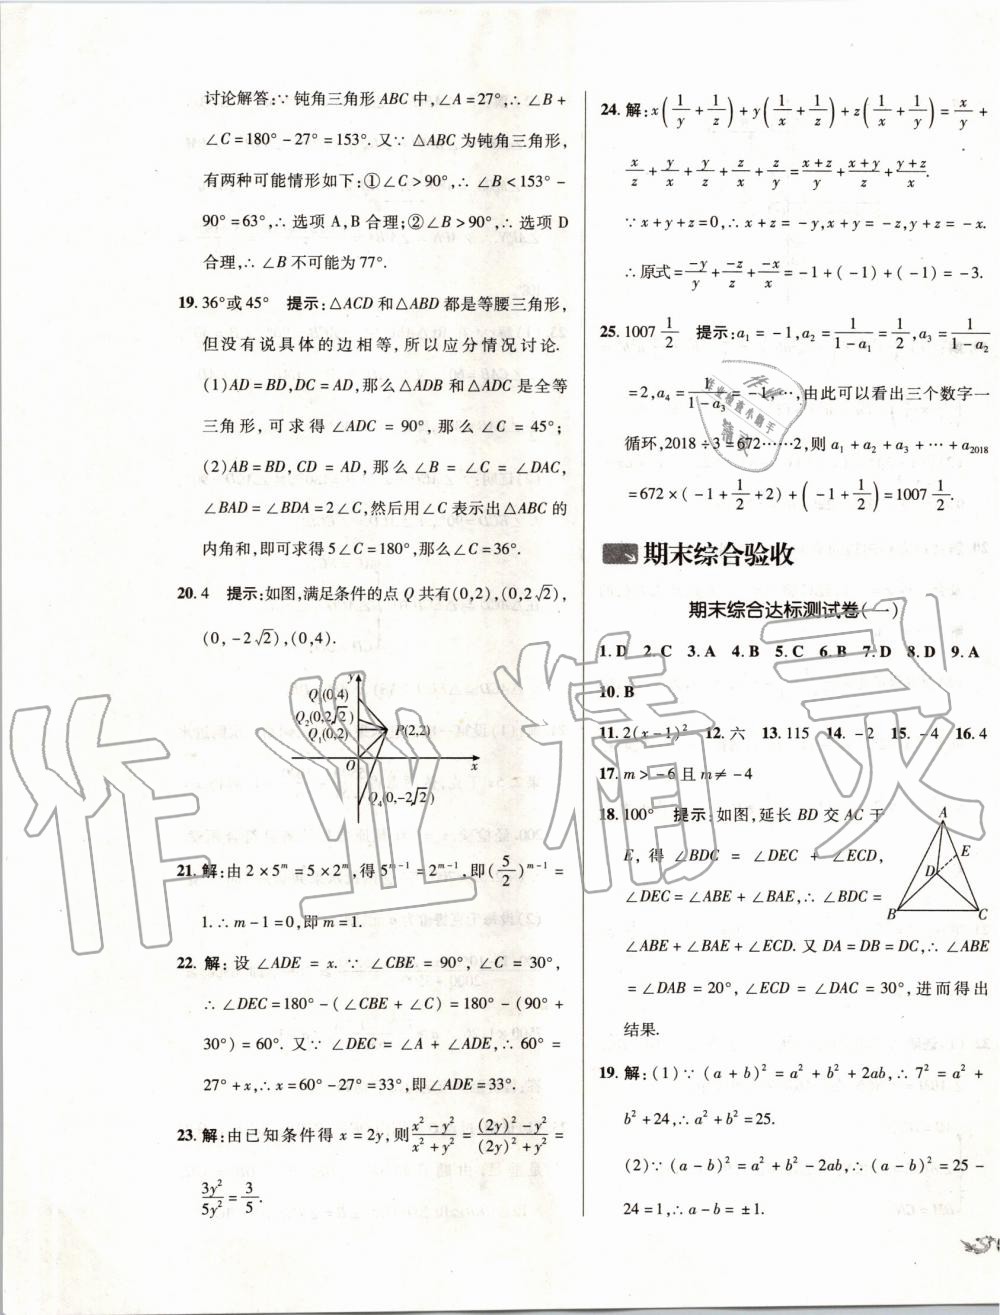 讨论解答:∵ 钝角三角形 ABC 中,∠A=27°,∴ ∠B+
∠C=180°-27°=153°. 又∵ △ABC 为钝角三角形,
有两种可能情形如下:①∠C>90°,∴ ∠B<153°-
90°=63°,∴ 选项 A,B 合理;②∠B>90°,∴ 选项 D
合理,∴ ∠B 不可能为 77°.
19. 36°或 45° 提示:△ACD 和△ABD 都是等腰三角形,
但没有说具体的边相等,所以应分情况讨论.
(1)AD=BD,DC=AD,那么△ADB 和△ADC 是全等
三角形,可求得∠ADC=90°,那么∠C=45°;
(2)AB=BD,CD=AD,那么∠B=∠C=∠DAC,
∠BAD=∠BDA=2∠C,然后用∠C 表示出△ABC 的
内角和,即可求得 5∠C=180°,那么∠C=36°.
20. 4 提示:如图,满足条件的点 Q 共有(0,2),(0,2√2),
(0,-2√2),(0,4).
y
Q3(0,4)
Q2(0,2√2)
Q1(0,2)
P(2,2)
O x
Q4(0,-2√2)
21. 解:由 2×5^m=5×2^m,得 5^(m-1)=2^(m-1),即(5/2)^(m-1)=
1. ∴ m-1=0,即 m=1.
22. 解:设∠ADE=x. ∵ ∠CBE=90°,∠C=30°,
∴ ∠DEC=180°-(∠CBE+∠C)=180°-(90°+
30°)=60°. 又∵ ∠DEC=∠A+∠ADE,∴ 60°=
27°+x,∴ x=60°-27°=33°,即∠ADE=33°.
23. 解:由已知条件得 x=2y,则(x²-y²)/(x²+y²)=((2y)²-y²)/((2y)²+y²)=
3y²/5y²=3/5.
24. 解:x(1/y+1/z)+y(1/x+1/z)+z(1/x+1/y)=x/y+
x/z+y/x+y/z+z/x+z/y=(x+z)/y+(x+y)/z+(y+z)/x.
∵ x+y+z=0,∴ x+z=-y,x+y=-z,y+z=-x.
∴ 原式=-y/y+-z/z+-x/x=-1+(-1)+(-1)=-3.
25. 1007 1/2 提示:a1=-1,a2=1/(1-a1)=1/2,a3=1/(1-a2)
=2,a4=1/(1-a3)=-1,…,由此可以看出三个数字一
循环,2018÷3=672……2,则 a1+a2+a3+…+a2018
=672×(-1+1/2+2)+(-1+1/2)=1007 1/2.
期末综合验收
期末综合达标测试卷(一)
1. D 2. C 3. A 4. B 5. C 6. B 7. D 8. D 9. A
10. B
11. 2(x-1)² 12. 六 13. 115 14. -2 15. -4 16. 4
17. m>-6 且 m≠-4
18. 100° 提示:如图,延长 BD 交 AC 于
E,得∠BDC=∠DEC+∠ECD,
∠DEC=∠ABE+∠BAE,∴ ∠BDC=
∠ABE+∠BAE+∠ECD. 又 DA=DB=DC,∴ ∠ABE
=∠DAB=20°,∠ECD=∠DAC=30°,进而得出
结果.
A
E
D
B C
19. 解:(1)∵ (a+b)²=a²+b²+2ab,∴ 7²=a²+
b²+24,∴ a²+b²=25.
(2)∵ (a-b)²=a²+b²-2ab,∴ (a-b)²=25-
24=1,∴ a-b=±1.
作业精灵
作业
作业检查小助手
精灵